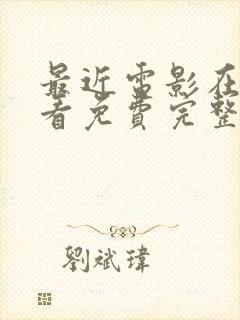 最近電影在
看免費完整
劉斌瑋